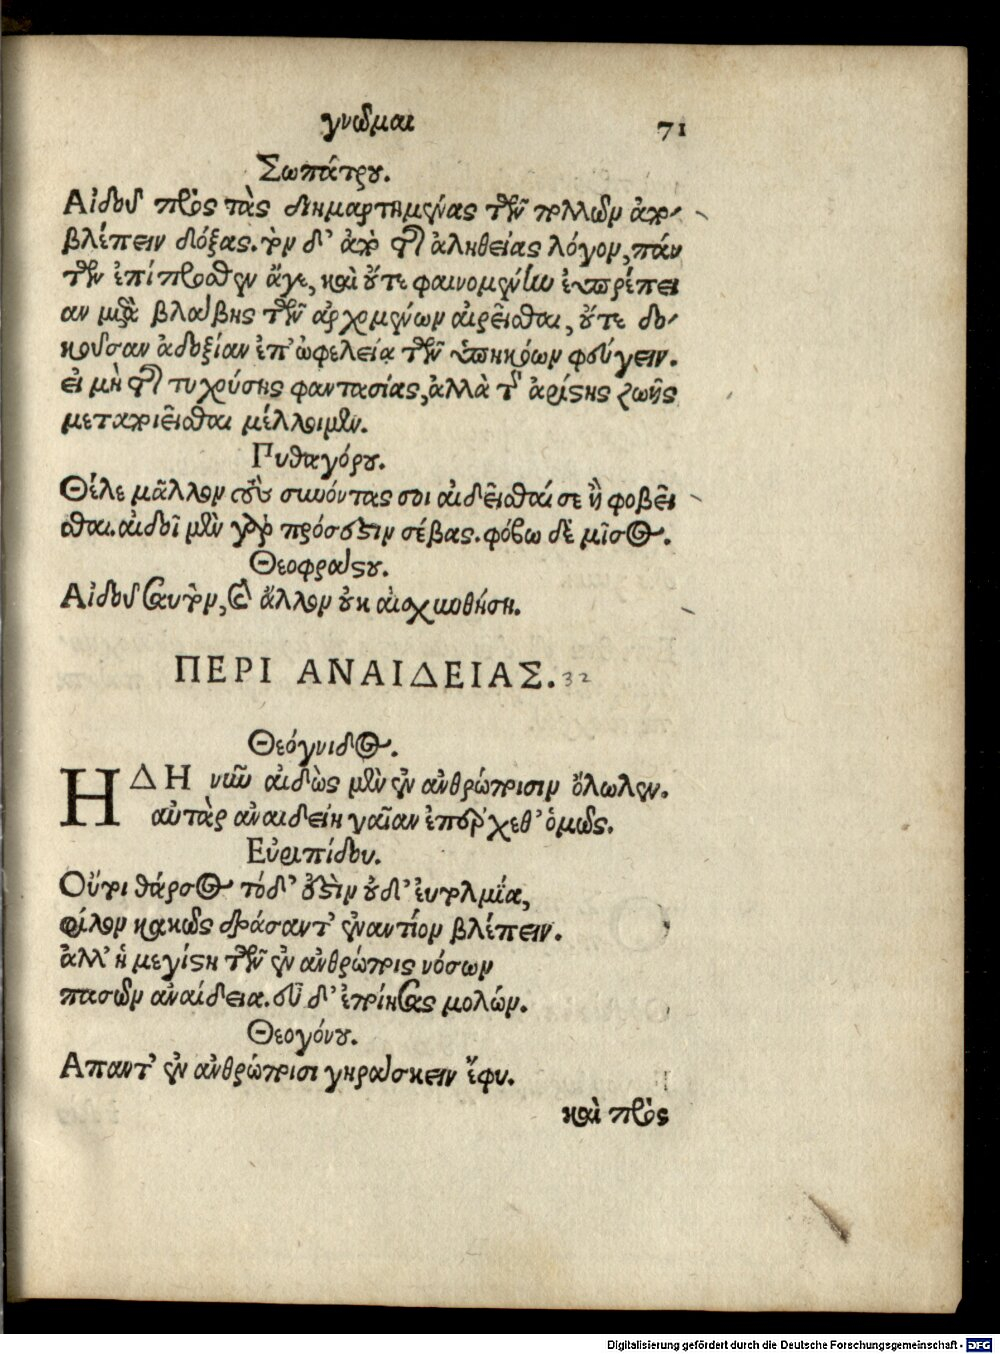 γνῶμαι 71
Σωπάτρου.
Αἰδοῦ πρὸς τὰς διημαρτημένας τῶν πολλῶν ἀπο-
βλέπειν δόξας. τὸν δ' ἀπὸ τῆς ἀληθείας λόγον, πάν
των ἐπίπροσθεν ἄγε, καὶ οὔτε φαινομένην εὐπρέπει
αν μετὰ βλάβης τῶν ἀρχομένων αἱρεῖσθαι, οὔτε δο-
κοῦσαν ἀδοξίαν ἐπ' ὠφελεία τῶν ὑπηκόων φεύγειν.
εἰ μὴ τῆς τυχούσης φαντασίας, ἀλλὰ τῆς ἀρίστης ζωῆς
μεταποιεῖσθαι μέλλοιμεν.
Πυθαγόρου.
Θέλε μᾶλλον τοὺς συνόντας σοι αἰδεῖσθαί σε ἢ φοβεῖ
σθαι. αἰδοῖ μὲν γὰρ πρόσεστιν σέβας. φόβω δὲ μῖσος.
Θεοφράστου.
Αἰδοῦ σαυτὸν, καὶ ἄλλον οὐκ αἰσχυνθήση.
ΠΕΡΙ ΑΝΑΙΔΕΙΑΣ. 32
Θεόγνιδος.
ΗΔΗ νῦν αἰδὼς μὲν ἐν ἀνθρώποισιν ὄλωλεν.
αὐτὰρ ἀναιδείη γαῖαν ἐπέρχεθ' ὁμῶς.
Εὐριπίδου.
Οὔτοι θάρσος τόδ' ἐστὶν οὐδ' εὐτολμία,
φίλον κακῶς δράσαντ' ἐναντίον βλέπειν.
ἀλλ' ἡ μεγίστη τῶν ἐν ἀνθρώποις νόσων
πασῶν ἀναίδεια. εὖ δ' ἐποίησας μολών.
Θεογόνου.
Απαντ' ἐν ἀνθρώποισι γηράσκειν ἔφυ.
καὶ πρὸς
Digitalisierung gefördert durch die Deutsche Forschungsgemeinschaft - DFG